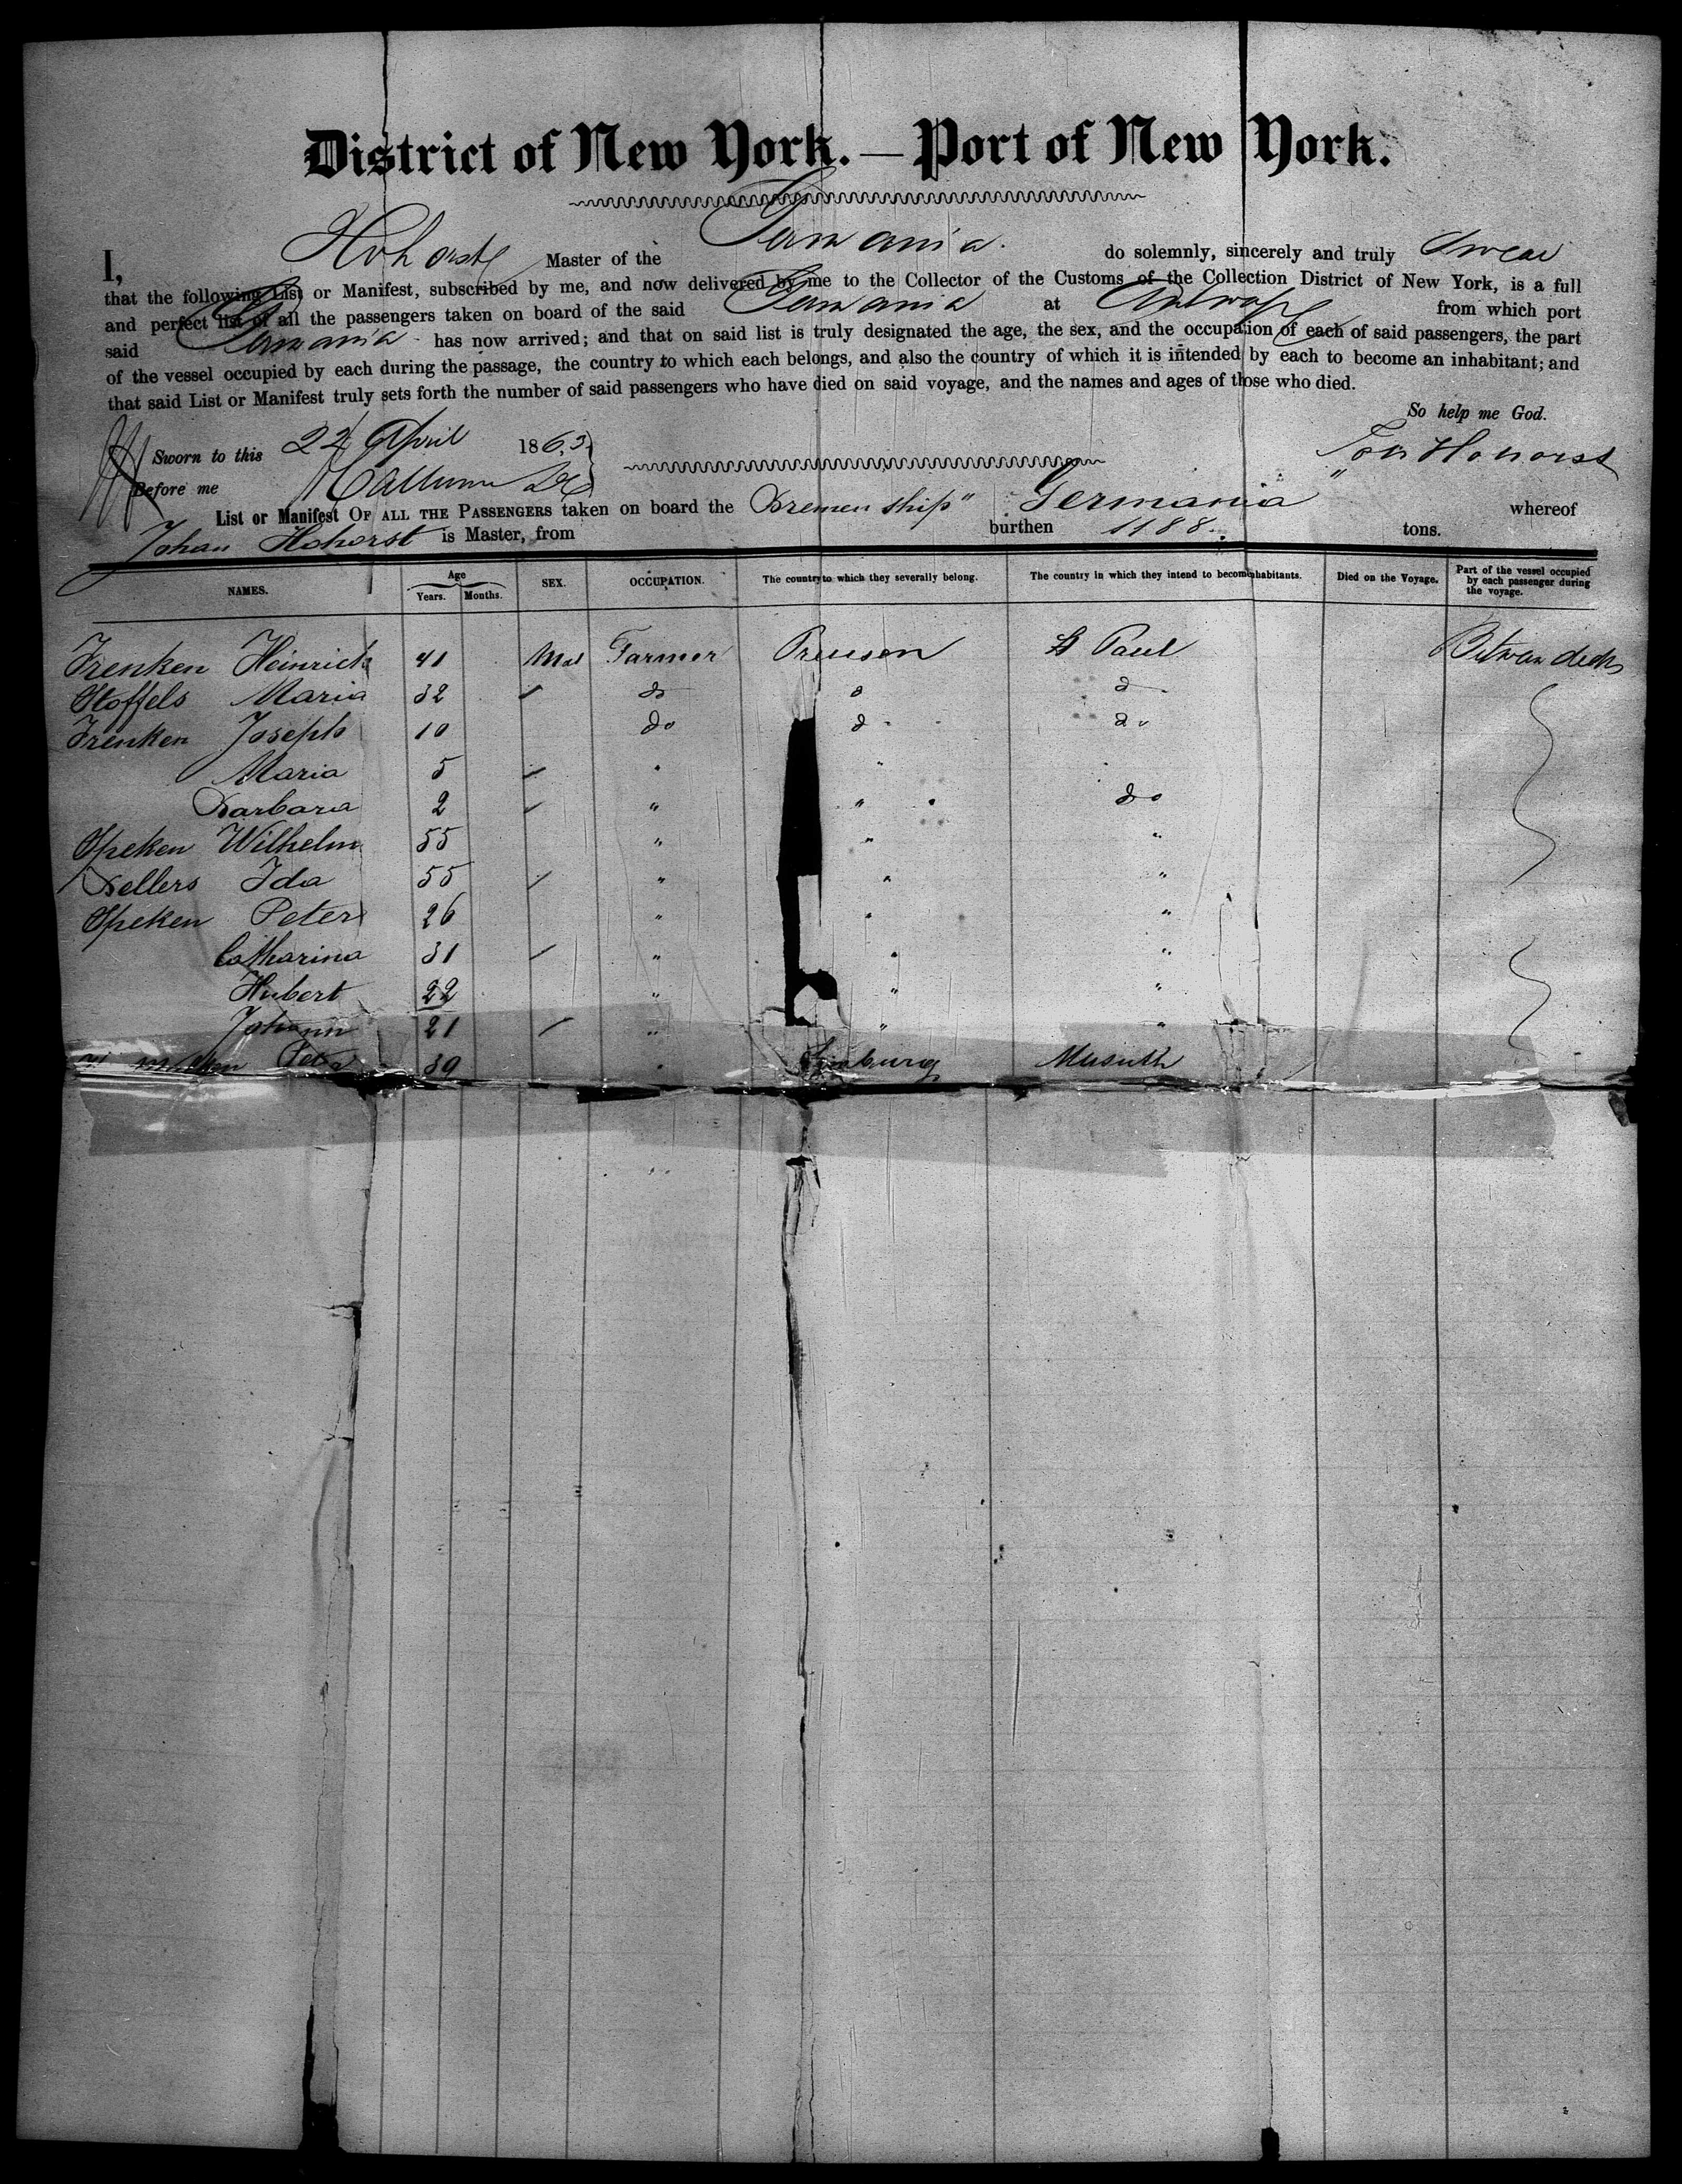 District of New York.—Port of New York.
I, Hohorst Master of the Germania. do solemnly, sincerely and truly swear
that the following List or Manifest, subscribed by me, and now delivered by me to the Collector of the Customs of the Collection District of New York, is a full
and perfect list of all the passengers taken on board of the said Germania at Antwerp from which port
said Germania has now arrived; and that on said list is truly designated the age, the sex, and the occupation of each of said passengers, the part
of the vessel occupied by each during the passage, the country to which each belongs, and also the country of which it is intended by each to become an inhabitant; and
that said List or Manifest truly sets forth the number of said passengers who have died on said voyage, and the names and ages of those who died.
So help me God.
Sworn to this 22 April 1863 Joh Hohorst
Before me
List or Manifest OF ALL THE PASSENGERS taken on board the Bremen ship "Germania" whereof
Johan Hohorst is Master, from burthen 1188 tons.
NAMES. Age Years. Months. SEX. OCCUPATION. The country to which they severally belong. The country in which they intend to become inhabitants. Died on the Voyage. Part of the vessel occupied by each passenger during the voyage.
Frenken Heinrich 41 Mal Farmer Preusen St Paul
Stoffels Maria 32 / do d d
Frenken Joseph 10 do d do
Maria 5 / " "
Barbara 2 / " " do
Speken Wilhelm 55 " " "
Sellers Ida 55 / " " "
Speken Peter 26 " " "
Catharina 31 / " " "
Hubert 22 " " "
Johann 21 / " " "
Peter 39 " Limburg